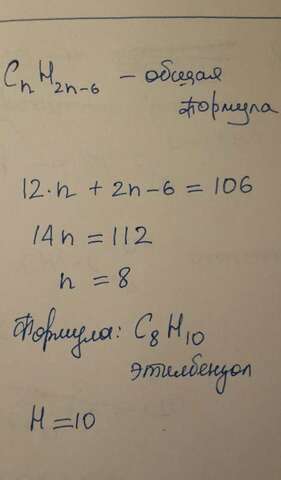 CₙH₂ₙ₋₆ – общая
формула
12·n + 2n–6 = 106
14n = 112
n = 8
Формула: C₈H₁₀
этилбензол
H = 10